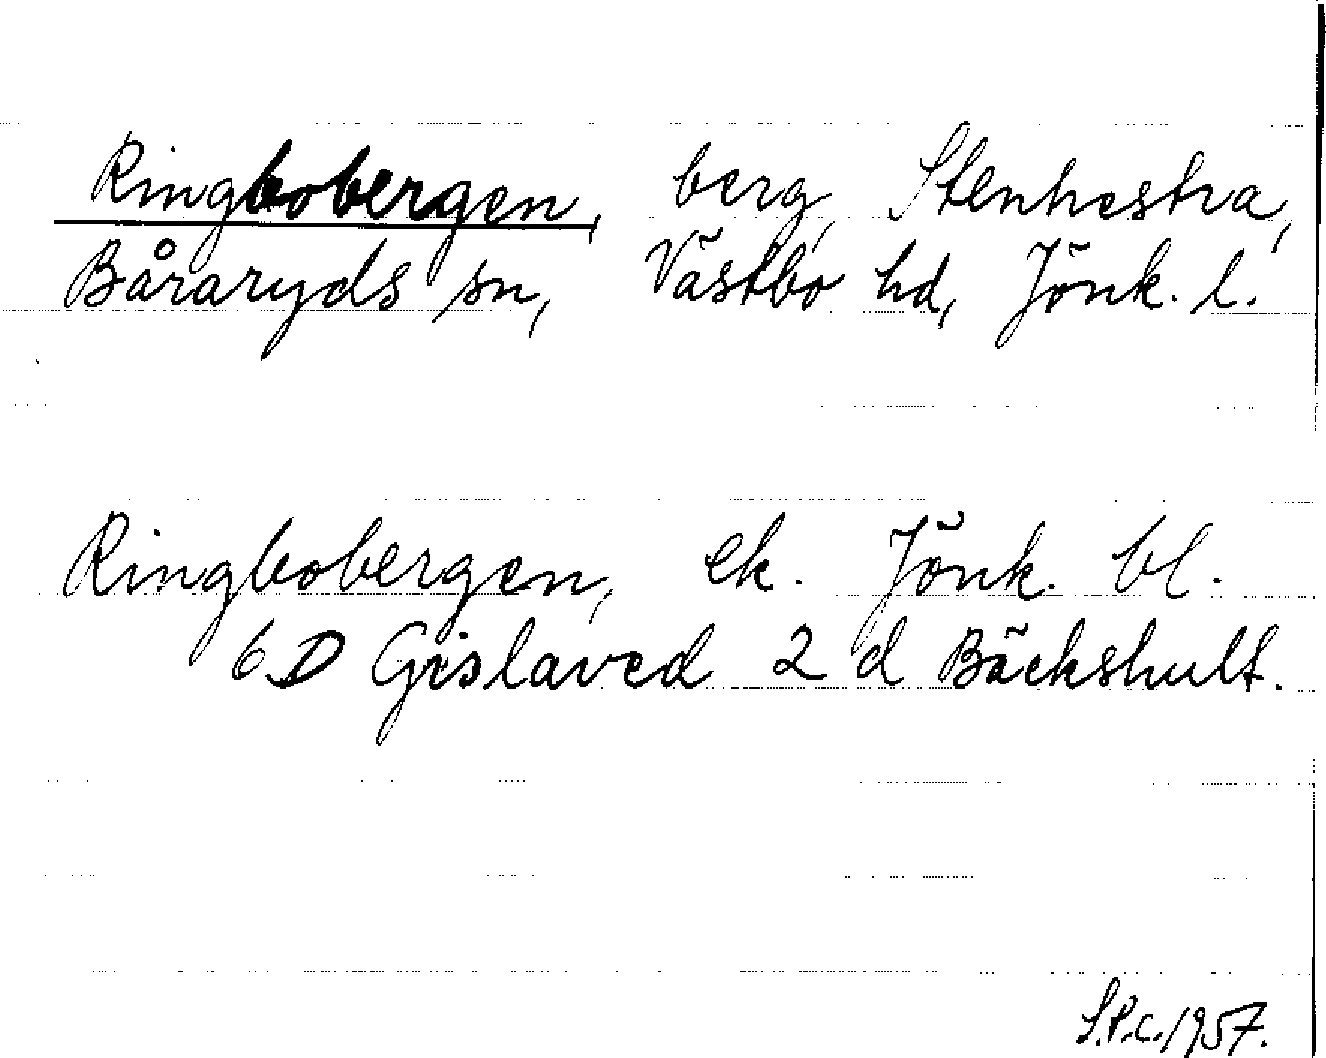 Ringbobergen, berg, Stenhestra,
Båraryds sn, Västbo hd, Jönk. l.
Ringbobergen, ek. Jönk. bl.
6 D Gislaved 2 d Bäckshult.
S.P.C. 1957.